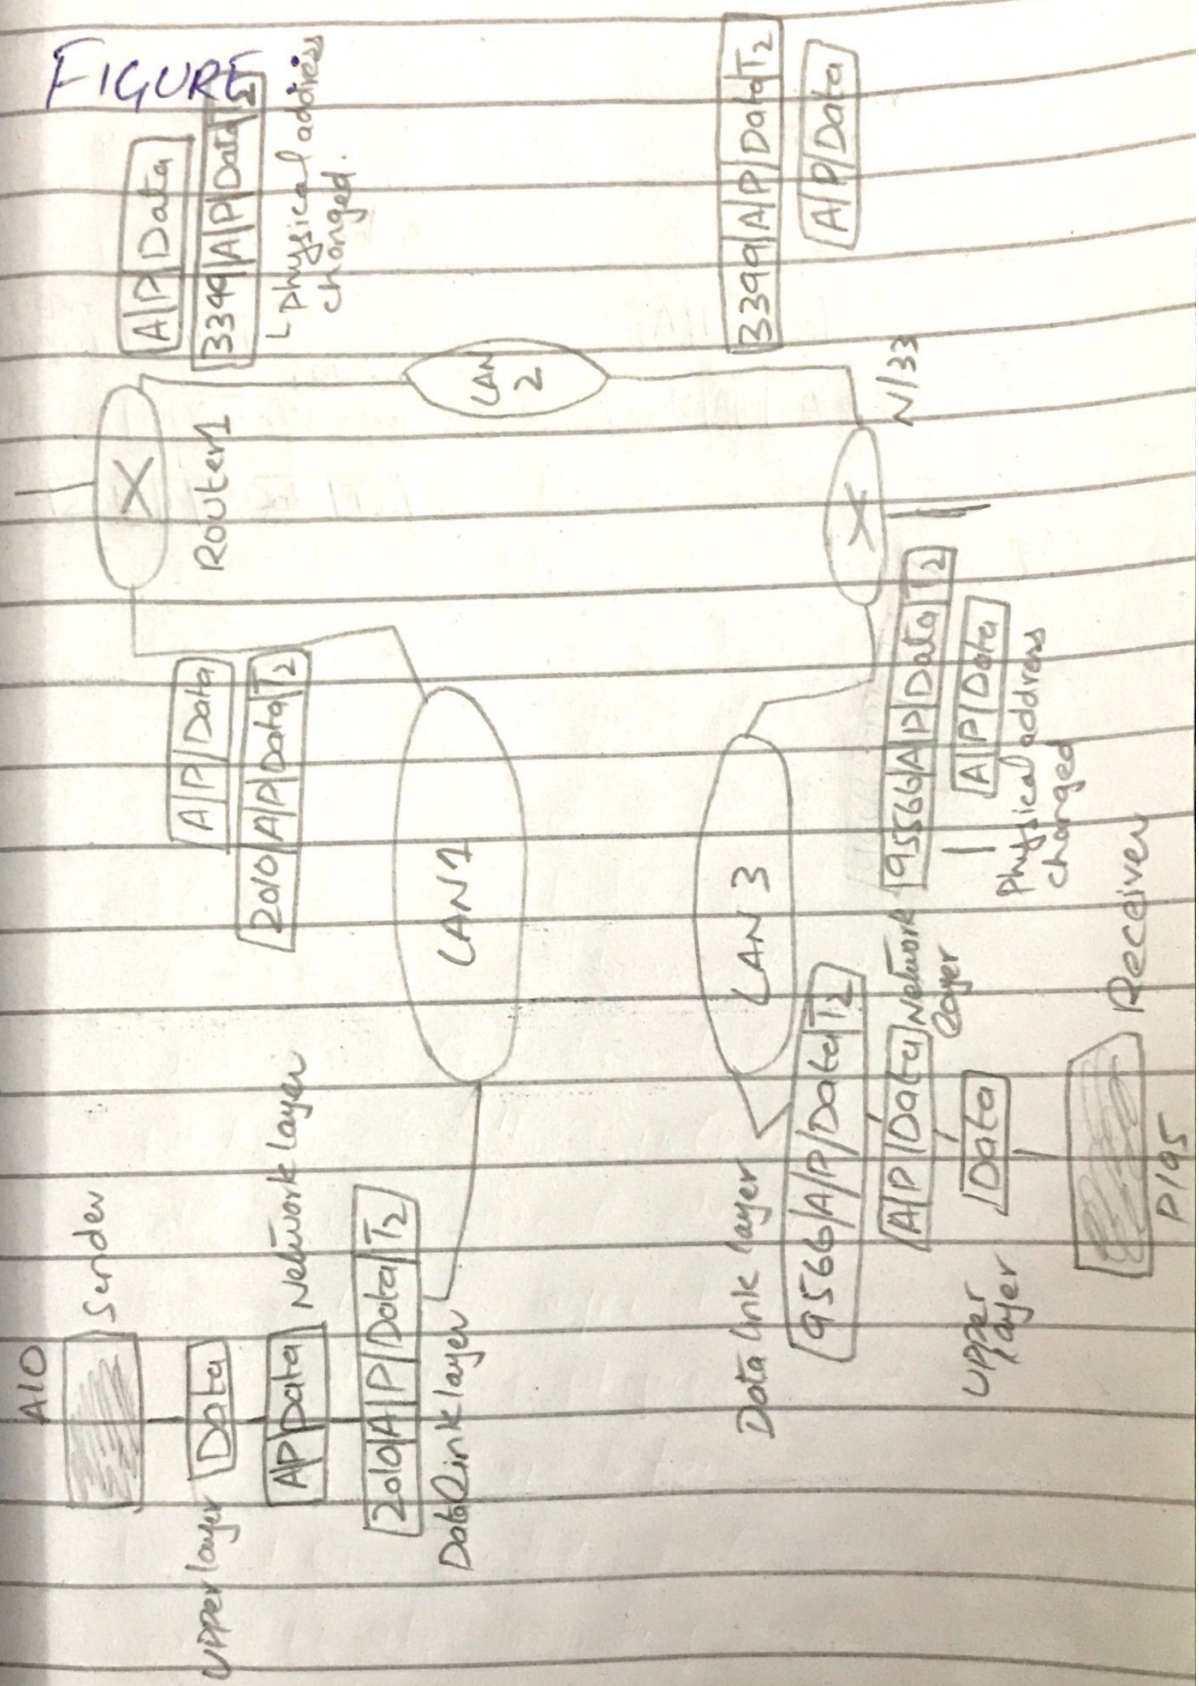 FIGURE
A10
Sender
Upper layer
Data
A|P|Data
Network layer
2010|A|P|Data|T2
Data link layer
A|P|Data
2010|A|P|Data|T2
LAN 1
X
Router1
A|P|Data
3399|A|P|Data|T2
Physical address
changed.
LAN
2
N/33
3399|A|P|Data|T2
A|P|Data
X
9566|A|P|Data|T2
A|P|Data
Physical address
changed
LAN 3
Data link layer
9566|A|P|Data|T2
A|P|Data
Network
layer
Upper
layer
Data
Receiver
P/95